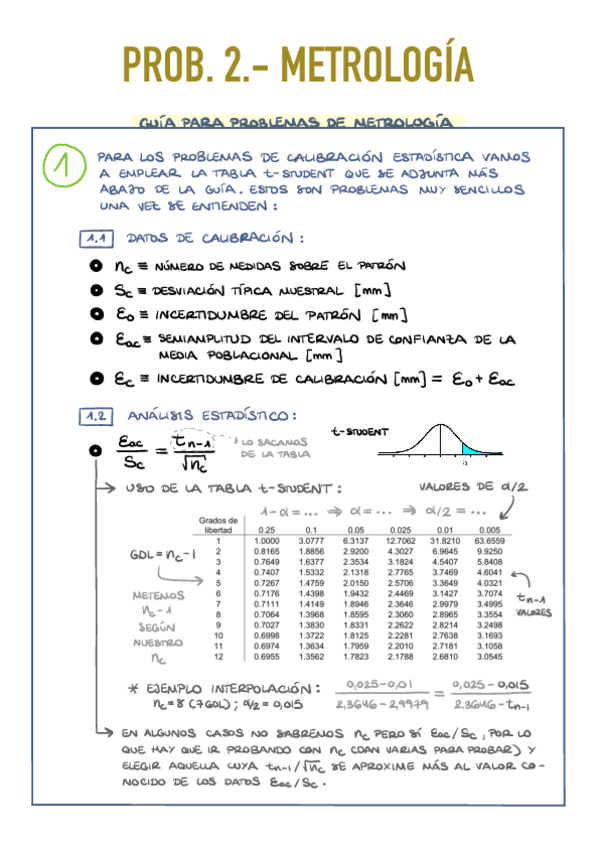 PROB. 2.- METROLOGÍA
GUÍA PARA PROBLEMAS DE METROLOGÍA
1 PARA LOS PROBLEMAS DE CALIBRACIÓN ESTADÍSTICA VAMOS
A EMPLEAR LA TABLA t-STUDENT QUE SE ADJUNTA MÁS
ABAJO DE LA GUÍA. ESTOS SON PROBLEMAS MUY SENCILLOS
UNA VEZ SE ENTIENDEN:
1.1 DATOS DE CALIBRACIÓN:
• nc ≡ NÚMERO DE MEDIDAS SOBRE EL PATRÓN
• Sc ≡ DESVIACIÓN TÍPICA MUESTRAL [mm]
• Eo ≡ INCERTIDUMBRE DEL PATRÓN [mm]
• Eac ≡ SEMIAMPLITUD DEL INTERVALO DE CONFIANZA DE LA
MEDIA POBLACIONAL [mm]
• Ec ≡ INCERTIDUMBRE DE CALIBRACIÓN [mm] = Eo + Eac
1.2 ANÁLISIS ESTADÍSTICO:
• Eac/Sc = tn-1/√nc LO SACAMOS
DE LA TABLA
t-STUDENT
→ USO DE LA TABLA t-STUDENT:
VALORES DE α/2
1-α = ... ⇒ α = ... ⇒ α/2 = ...
Grados de
libertad 0.25 0.1 0.05 0.025 0.01 0.005
1 1.0000 3.0777 6.3137 12.7062 31.8210 63.6559
2 0.8165 1.8856 2.9200 4.3027 6.9645 9.9250
3 0.7649 1.6377 2.3534 3.1824 4.5407 5.8408
4 0.7407 1.5332 2.1318 2.7765 3.7469 4.6041
5 0.7267 1.4759 2.0150 2.5706 3.3649 4.0321
6 0.7176 1.4398 1.9432 2.4469 3.1427 3.7074
7 0.7111 1.4149 1.8946 2.3646 2.9979 3.4995
8 0.7064 1.3968 1.8595 2.3060 2.8965 3.3554
9 0.7027 1.3830 1.8331 2.2622 2.8214 3.2498
10 0.6998 1.3722 1.8125 2.2281 2.7638 3.1693
11 0.6974 1.3634 1.7959 2.2010 2.7181 3.1058
12 0.6955 1.3562 1.7823 2.1788 2.6810 3.0545
GDL = nc-1
METEMOS
nc-1
SEGÚN
NUESTRO
nc
tn-1
VALORES
* EJEMPLO INTERPOLACIÓN:
nc = 8 (7 GDL); α/2 = 0,015
0,025-0,01 / 2,3646-2,9979 = 0,025-0,015 / 2,3646-tn-1
→ EN ALGUNOS CASOS NO SABREMOS nc PERO SÍ Eac/Sc, POR LO
QUE HAY QUE IR PROBANDO CON nc (DAN VARIAS PARA PROBAR) Y
ELEGIR AQUELLA CUYA tn-1/√nc SE APROXIME MÁS AL VALOR CO-
NOCIDO DE LOS DATOS Eac/Sc.